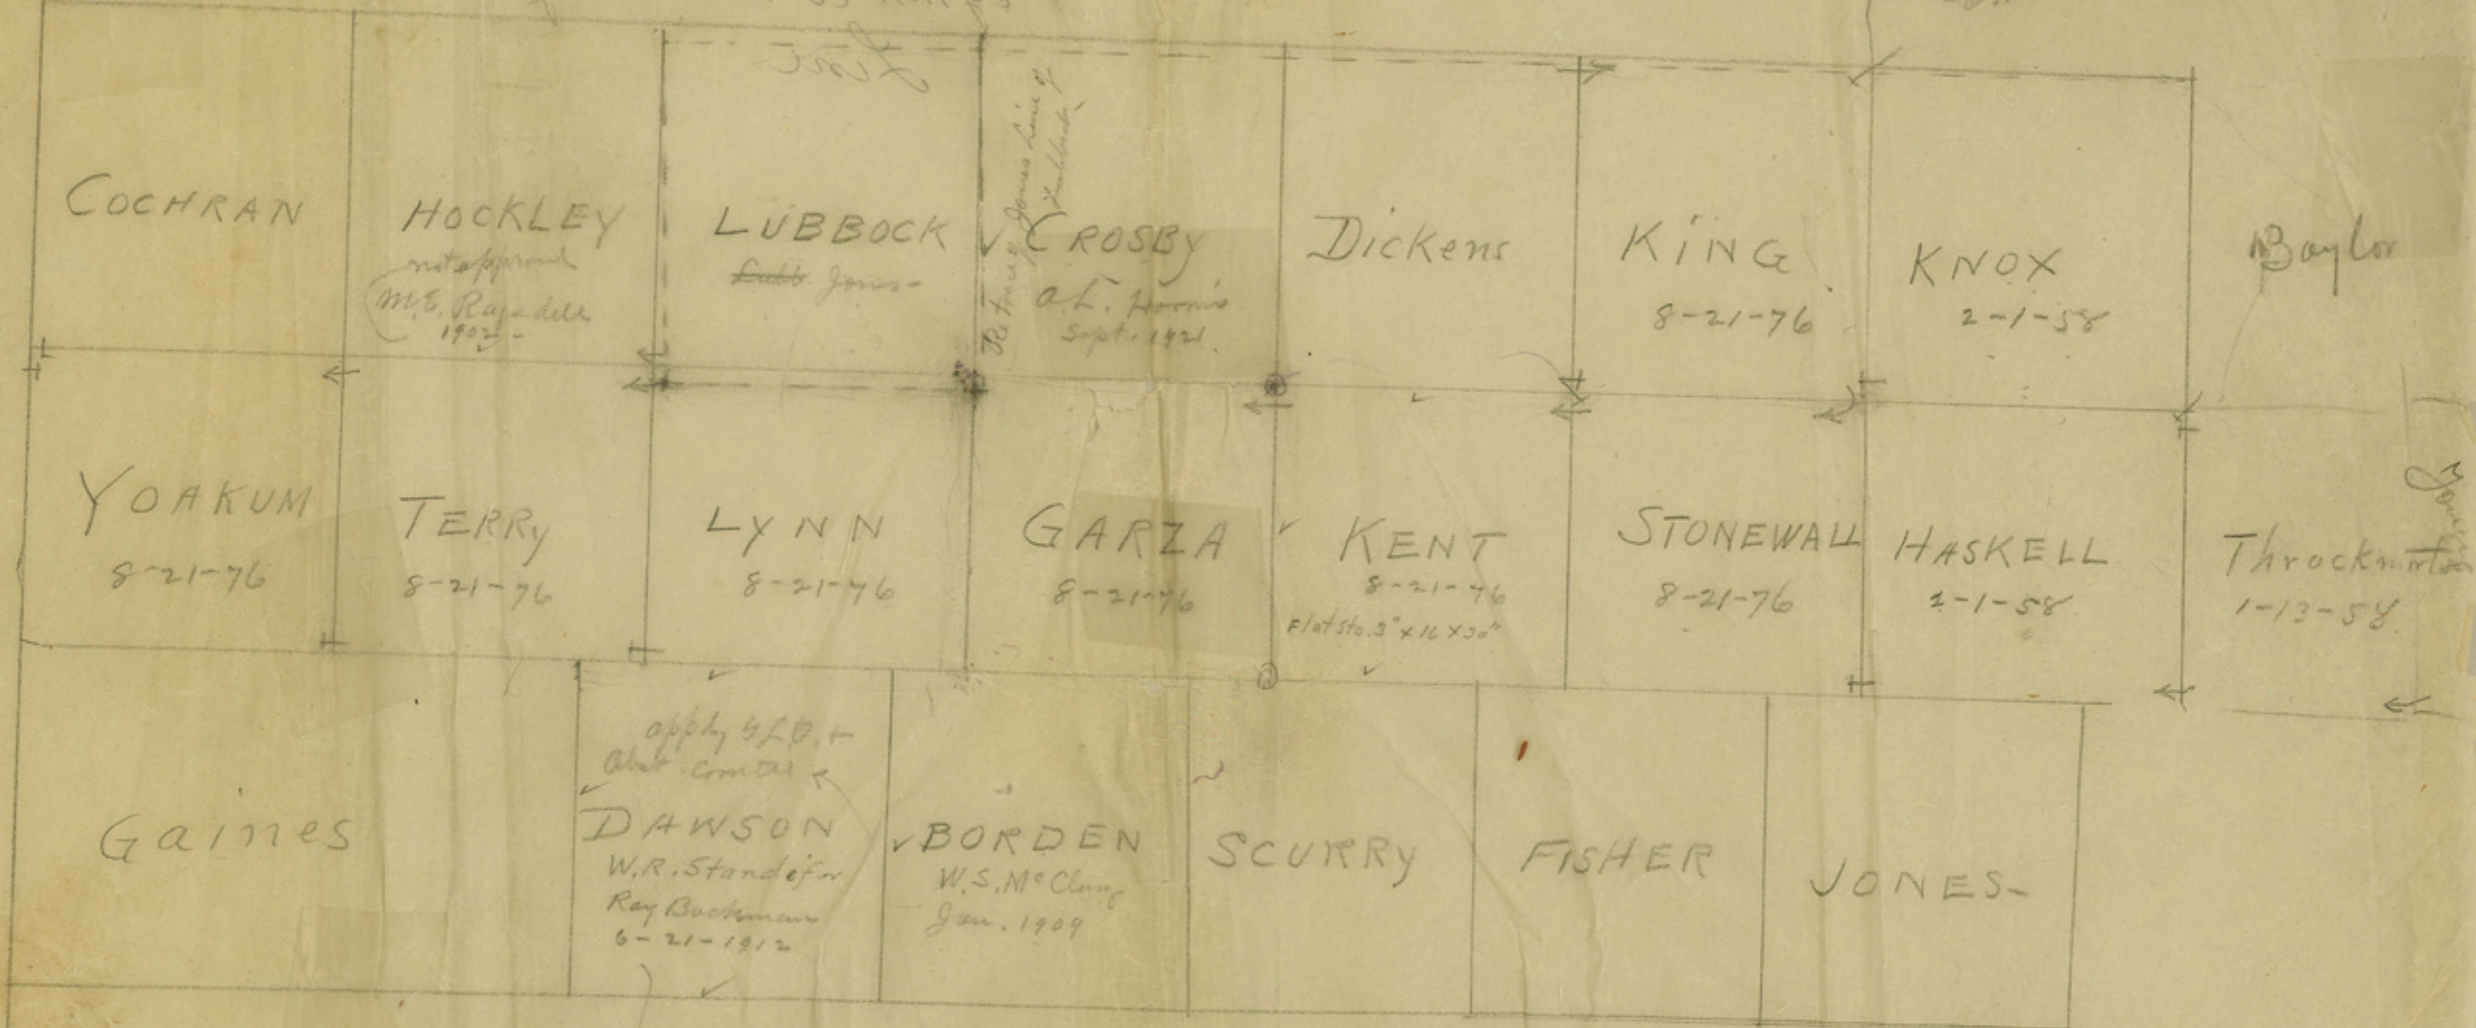 Line
COCHRAN
HOCKLEY
not approved
M.E. Ragsdale
1902
LUBBOCK
Lubb. Jones
Retrace Jones Line of
Lubbock
CROSBY
A.L. Harris
Sept. 1921
Dickens
KING
8-21-76
KNOX
2-1-58
Baylor
YOAKUM
8-21-76
TERRY
8-21-76
LYNN
8-21-76
GARZA
8-21-76
KENT
8-21-76
Flat sto. 3" x 16 x 30"
STONEWALL
8-21-76
HASKELL
2-1-58
Throckmorton
1-13-58
Young
Gaines
apply G.L.O. +
Abst.
DAWSON
W.R. Standifer
Ray Buckman
6-21-1912
BORDEN
W.S. McClung
Jan. 1909
SCURRY
FISHER
JONES